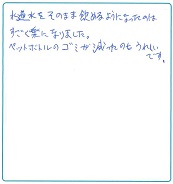 水道水をそのまま飲めるようになったのは
すごく楽になりました。
ペットボトルのゴミが減ったのもうれしい
です。